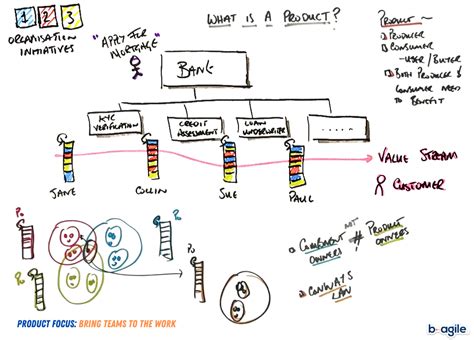 1 2 3
ORGANISATION
INITIATIVES
WHAT IS A PRODUCT?
"APPLY FOR
MORTGAGE"
BANK
PRODUCT ~
→ PRODUCER
→ CONSUMER
- USER / BUYER
→ BOTH PRODUCER &
CONSUMER NEED
TO BENEFIT
KYC
VERIFICATION
CREDIT
ASSESSMENT
LOAN
UNDERWRITER
......
JANE
COLLIN
SUE
PAUL
VALUE STREAM
CUSTOMER
Po
Po
Po
→ COMPONENT NOT
OWNERS
≠ PRODUCT
OWNERS
→ CONWAYS
LAW
PRODUCT FOCUS: BRING TEAMS TO THE WORK
b agile